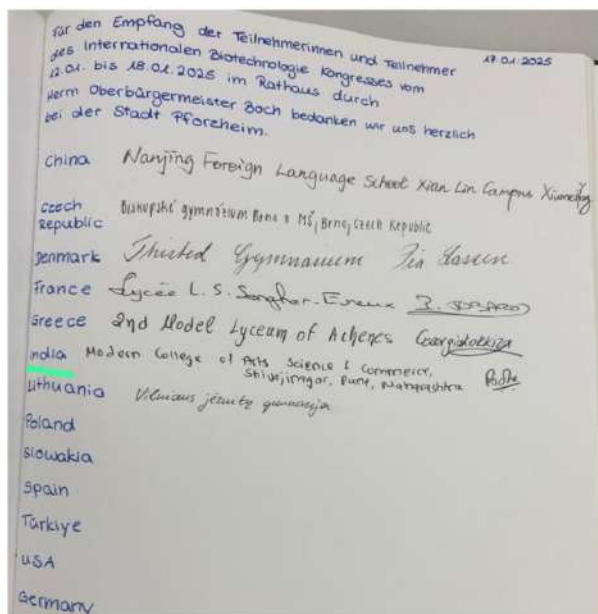 Für den Empfang der Teilnehmerinnen und Teilnehmer
17.01.2025
des Internationalen Biotechnologie Kongresses vom
12.01. bis 18.01.2025 im Rathaus durch
Herrn Oberbürgermeister Boch bedanken wir uns herzlich
bei der Stadt Pforzheim.
China Nanjing Foreign Language School Xian Lin Campus
Czech Republic Biskupské gymnázium Brno a MŠ, Brno, Czech Republic
Denmark Thisted Gymnasium Pia
France Lycée L. S. Senghor - Evreux
Greece 2nd Model Lyceum of Athens
India Modern College of Arts Science & Commerce,
Shivajinagar, Pune, Maharashtra
Lithuania Vilniaus jėzuitų gimnazija
Poland
Slowakia
Spain
Türkiye
USA
Germany